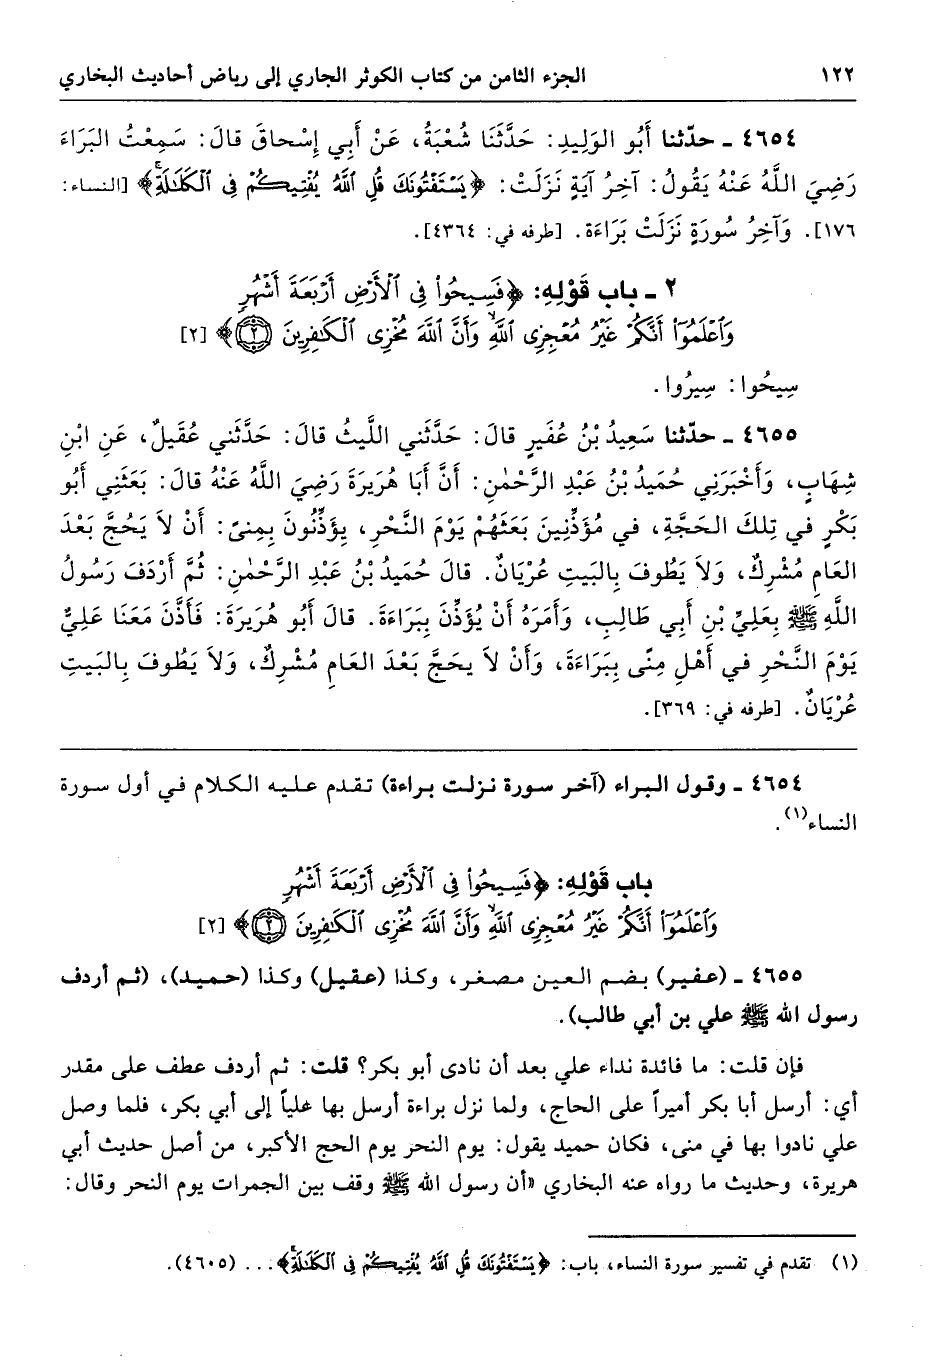 ١٢٢ الجزء الثامن من كتاب الكوثر الجاري إلى رياض أحاديث البخاري
٤٦٥٤ ـ حدّثنا أَبُو الوَلِيدِ: حَدَّثَنَا شُعْبَةُ، عَنْ أَبِي إِسْحاقَ قالَ: سَمِعْتُ البَرَاءَ
رَضِيَ اللَّهُ عَنْهُ يَقُولُ: آخِرُ آيَةٍ نَزَلَتْ: ﴿يَسْتَفْتُونَكَ قُلِ ٱللَّهُ يُفْتِيكُمْ فِى ٱلْكَلَـٰلَةِۚ﴾ [النساء:
١٧٦]. وَآخِرُ سُورَةٍ نَزَلَتْ بَرَاءَة. [طرفه في: ٤٣٦٤].
٢ ـ باب قَوْلِهِ: ﴿فَسِيحُوا۟ فِى ٱلْأَرْضِ أَرْبَعَةَ أَشْهُرٍ
وَٱعْلَمُوٓا۟ أَنَّكُمْ غَيْرُ مُعْجِزِى ٱللَّهِۙ وَأَنَّ ٱللَّهَ مُخْزِى ٱلْكَـٰفِرِينَ ۝٢﴾ [٢]
سِيحُوا: سِيرُوا.
٤٦٥٥ ـ حدّثنا سَعِيدُ بْنُ عُفَيرٍ قالَ: حَدَّثَني اللَّيثُ قالَ: حَدَّثَني عُقَيلٌ، عَنِ ابْنِ
شِهَابٍ، وَأَخْبَرَنِي حُمَيدُ بْنُ عَبْدِ الرَّحْمٰنِ: أَنَّ أَبَا هُرَيرَةَ رَضِيَ اللَّهُ عَنْهُ قالَ: بَعَثَنِي أَبُو
بَكْرٍ في تِلكَ الحَجَّةِ، في مُؤَذِّنِينَ بَعَثَهُمْ يَوْمَ النَّحْرِ، يؤَذِّنُونَ بِمِنىً: أَنْ لاَ يَحُجَّ بَعْدَ
العَامِ مُشْرِكٌ، وَلاَ يَطُوفَ بِالبَيتِ عُرْيَانٌ. قالَ حُمَيدُ بْنُ عَبْدِ الرَّحْمٰنِ: ثُمَّ أَرْدَفَ رَسُولُ
اللَّهِ ﷺ بِعَلِيِّ بْنِ أَبِي طَالِبٍ، وَأَمَرَهُ أَنْ يُؤَذِّنَ بِبَرَاءَةَ. قالَ أَبُو هُرَيرَةَ: فَأَذَّنَ مَعَنَا عَلِيٌّ
يَوْمَ النَّحْرِ في أَهْلِ مِنًى بِبَرَاءَةَ، وَأَنْ لاَ يحَجَّ بَعْدَ العَامِ مُشْرِكٌ، وَلاَ يَطُوفَ بِالبَيتِ
عُرْيَانٌ. [طرفه في: ٣٦٩].
٤٦٥٤ ـ وقول البراء (آخر سورة نزلت براءة) تقدم عليه الكلام في أول سورة
النساء(١).
باب قَوْلِهِ: ﴿فَسِيحُوا۟ فِى ٱلْأَرْضِ أَرْبَعَةَ أَشْهُرٍ
وَٱعْلَمُوٓا۟ أَنَّكُمْ غَيْرُ مُعْجِزِى ٱللَّهِۙ وَأَنَّ ٱللَّهَ مُخْزِى ٱلْكَـٰفِرِينَ ۝٢﴾ [٢]
٤٦٥٥ ـ (عفير) بضم العين مصغر، وكذا (عقيل) وكذا (حميد)، (ثم أردف
رسول الله ﷺ علي بن أبي طالب).
فإن قلت: ما فائدة نداء علي بعد أن نادى أبو بكر؟ قلت: ثم أردف عطف على مقدر
أي: أرسل أبا بكر أميراً على الحاج، ولما نزل براءة أرسل بها علياً إلى أبي بكر، فلما وصل
علي نادوا بها في منى، فكان حميد يقول: يوم النحر يوم الحج الأكبر، من أصل حديث أبي
هريرة، وحديث ما رواه عنه البخاري «أن رسول الله ﷺ وقف بين الجمرات يوم النحر وقال:
(١) تقدم في تفسير سورة النساء، باب: ﴿يَسْتَفْتُونَكَ قُلِ ٱللَّهُ يُفْتِيكُمْ فِى ٱلْكَلَـٰلَةِۚ﴾... (٤٦٠٥).